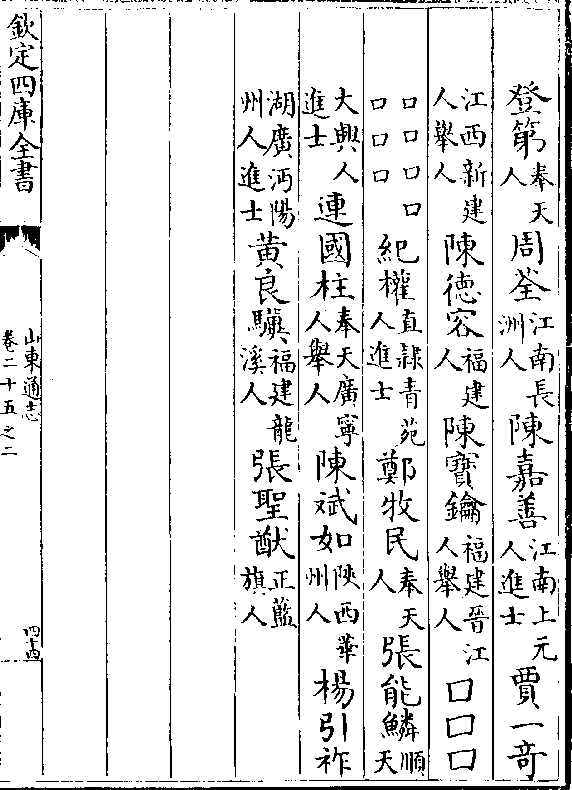 登第奉天人周荃江南長洲人陳嘉善江南上元人進士賈一奇
江西新建人舉人陳德容福建人陳寶鑰福建晉江人舉人□□□
□□□□□□□紀權直隸青苑人進士鄭牧民奉天人張能鱗順天
大興人進士連國柱奉天廣寧人舉人陳斌如陜西華州人楊引祚
湖廣沔陽州人進士黃良驥福建龍溪人張聖猷正藍旗人
欽定四庫全書
山東通志
卷二十五之二
四十四